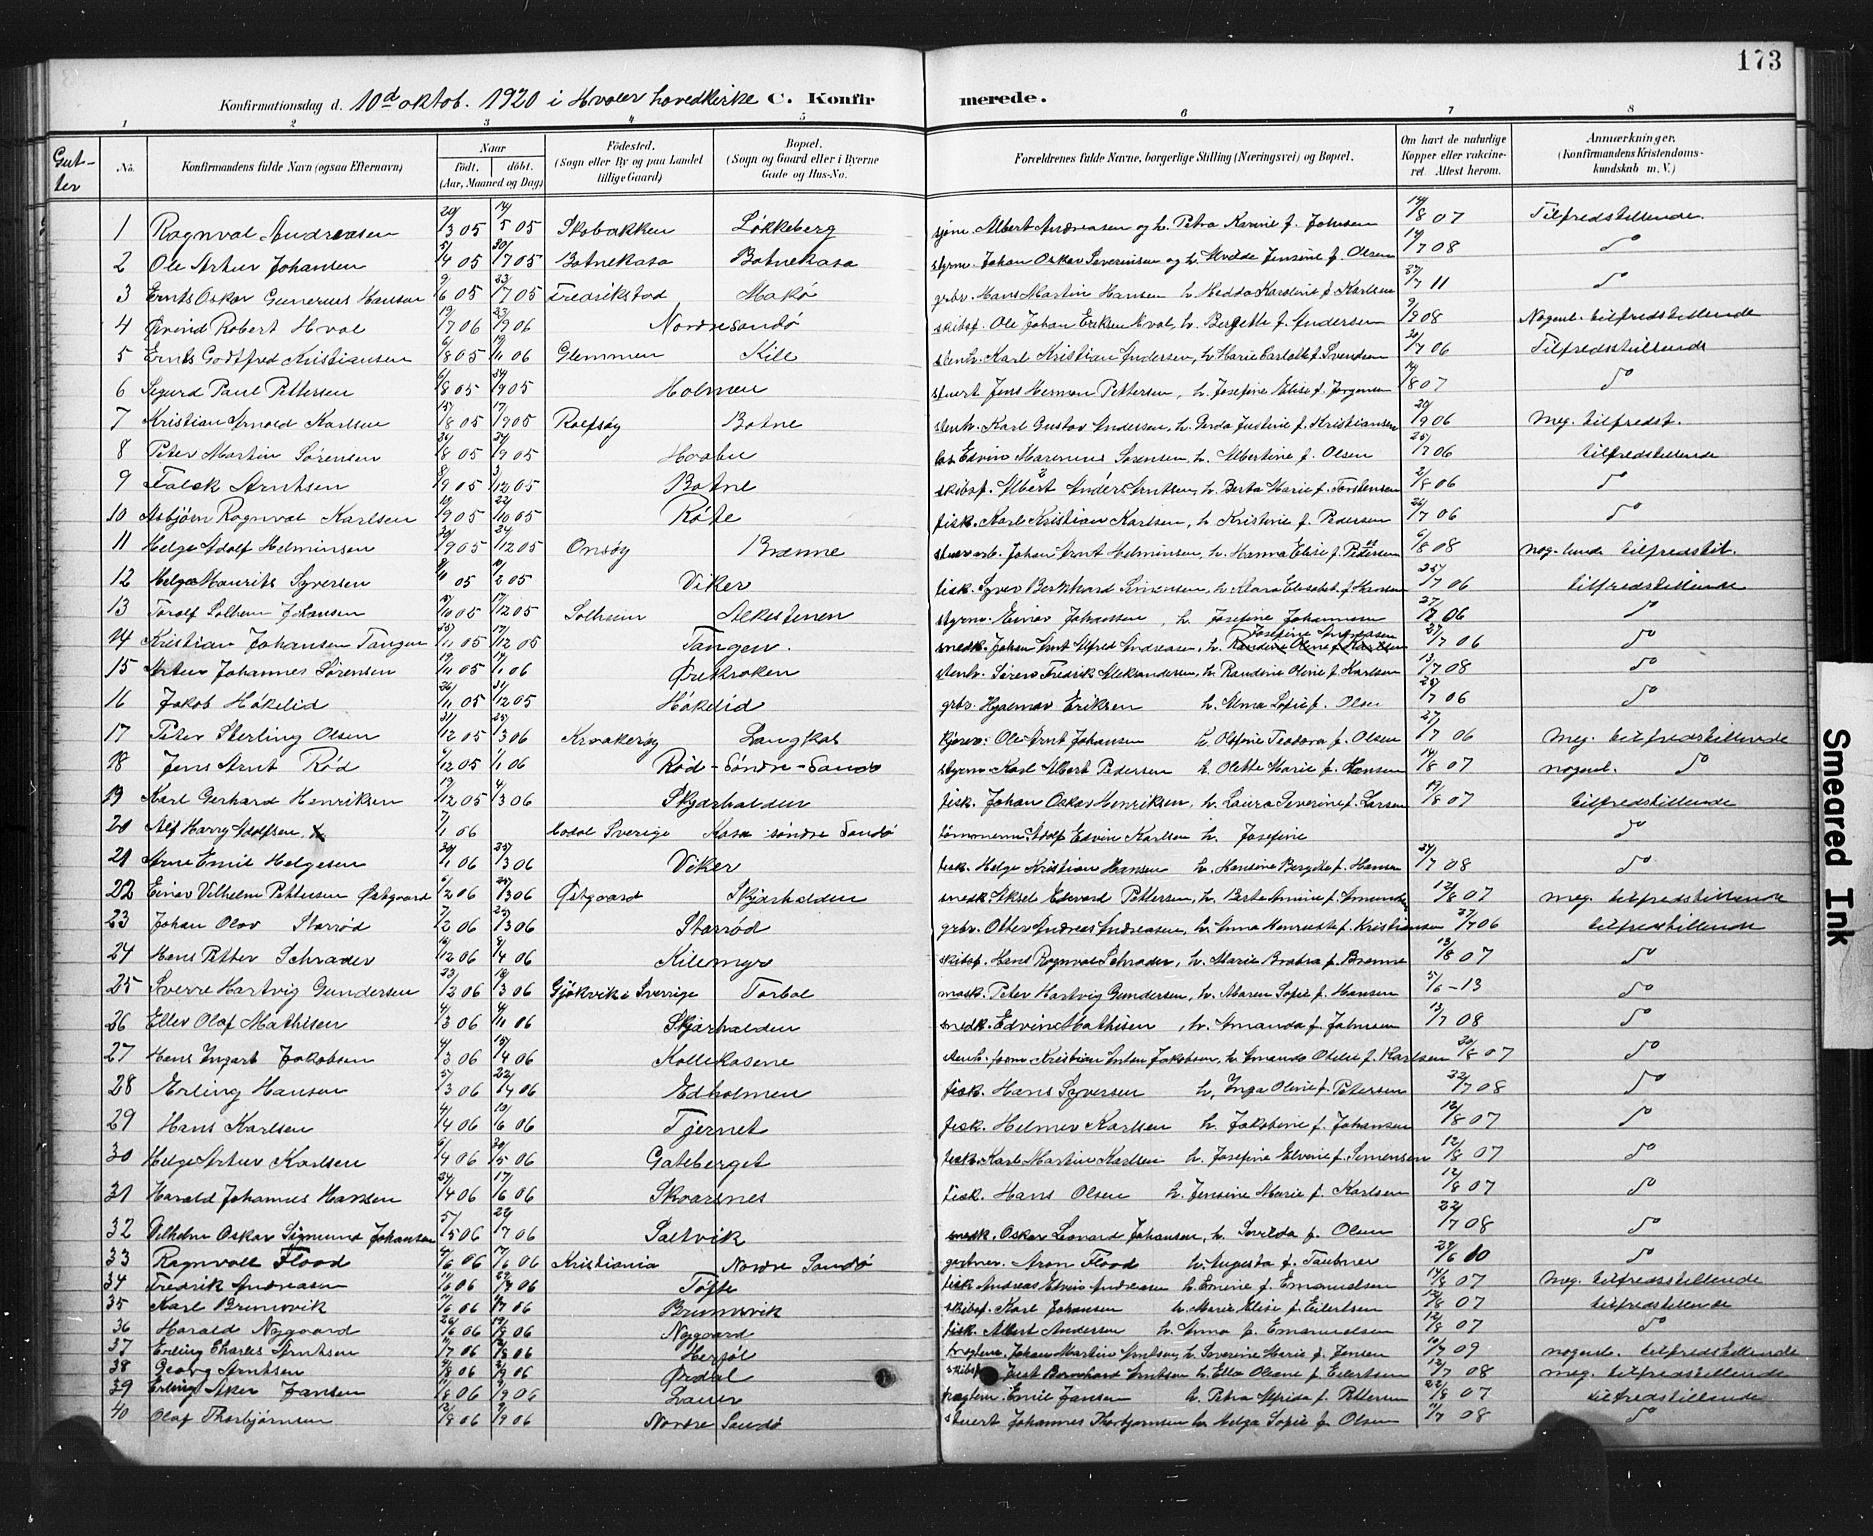 173
Konfirmationsdag d. 10d oktob. 1920 i Hvaler hovedkirke C. Konfirmerede.
1 2 3 4 5 6 7 8
Gutter
No. Konfirmandens fulde Navn (ogsaa Efternavn) Naar født. døbt. (Aar, Maaned og Dag) Fødested. (Sogn eller By og paa Landet tillige Gaard) Bopæl. (Sogn og Gaard eller i Byerne Gade og Hus-No. Forældrenes fulde Navne, borgerlige Stilling (Næringsvei) og Bopæl. Om havt de naturlige Kopper eller vakcineret. Attest herom. Anmærkninger, (Konfirmandens Kristendomskundskab m. V.)
1 Ragnval Andreasen 20/3 05 14/5 05 Skobakken Løkkeberg sjøm. Albert Andreasen og h. Petra Karine f. Johnsen 14/8 07 Tilfredstillende.
2 Ole Artur Johansen 5/4 05 30/7 05 Botnekasa Botnekasa styrm. Johan Oskar Severinsen og h. Jensine f. Olsen 14/7 08 do
3 Ernts Oskar Gunerius Hansen 9/6 05 23/7 05 Fredrikstad Makø grbr. Hans Martin Hansen h. Hedda Karoline f. Karlsen 27/7 11 do
4 Øvind Robert Hval 19/7 06 23/9 06 Nordre sandø skibsf. Ole Johan Eriksen Hval, h. Bergette f. Andersen 9/9 08 Nogenl. tilfredstillende
5 Ernts Godtfred Kristiansen 6/8 05 19/11 06 Glemmen Kile stenh. Karl Kristian Andersen, h. Marie Carlotte f. Svendsen 20/7 06 Tilfredsstillende
6 Sigurd Paul Pettersen 6/8 05 24/9 05 Holmen stuert Jens Herman Pettersen, h. Josefine Elise f. Jørgensen 14/8 07 do
7 Kristian Arnold Karlsen 15/8 05 17/9 05 Rolfsøy Botne stenh. Karl Gustav Andersen, h. Gerda Justine f. Kristiansen 20/9 06 Meg. tilfredst.
8 Peter Martin Sørensen 24/8 05 24/9 05 Hvobu los Edvin Marenius Sørensen, h. Albertine f. Olsen 25/7 06 tilfredstillende
9 Falck Arntsen 8/9 05 3/12 05 Botne skibsf. Albert Anders Arntsen, h. Berta Marie f. Torstensen 2/8 06 do
10 Asbjørn Ragnval Karlsen 19/9 05 22/10 05 Røfte fisk. Karl Kristian Karlsen, h. Kristine f. Pedersen 26/7 06 do
11 Helge Adolf Helminsen 30/9 05 24/12 05 Onsøy Brænne stuerarb. Johan Arnt Helminsen, h. Hanna Elise f. Pedersen 6/8 08 nog. lunde tilfredstil.
12 Helge Maurits Syversen 05 2 05 Viker fisk. Syver Bernhard Simensen, h. Klara Elisabet f. Hansen 25/7 06 tilfredstillende
13 Toralf Solheim Johansen 10 05 17/12 05 Solheim Alkestenen styrm. Einar Johanssen, h. Josefine Johannesen 27/7 06 do
14 Kristian Johansen Tangen 25/11 05 17/12 05 Tangen. snedk. Johan Arnt Alfred Andreasen, h. Josefine Andreasen 27/7 06 do
15 Artur Johannes Sørensen 19/11 05 14/1 06 Ørekroken stenh. Søren Fredrik Aleksandersen, h. Randine Oline f. Karlsen 13/7 08 do
16 Jakob Håkelid 26/11 05 31/12 05 Håkelid grbr. Hjalmar Eriksen h. Alma Sofie f. Olsen 25/7 06 do
17 Peter Sterling Olsen 21/12 05 25/3 06 Kråkerøy Langkas Ole Arnt Johansen h. Teodora f. Olsen 27/7 06 Meg. tilfredstillende
18 Jens Arnt Rød 6/12 05 1/1 06 Rød - Søndre - Sandø styrm. Karl Albert Pedersen h. Olette Marie f. Hansen 14/8 07 nogenl. do
19 Karl Gerhard Henriksen 19/12 05 4/3 06 Skjærhalden fisk. Johan Oskar Henriksen, h. Laura Severine f. Larsen 19/8 07 tilfredstillende
20 Alf Harry Adolfsen X 7/1 06 Modal Sverige Kasa søndre Sandø tømmerm. Adolf Edvin Karlsen h. Josefine do
21 Arne Emil Helgesen 30/1 06 25/3 06 Viker fisk. Helge Kristian Hansen h. Hansine Bergitte f. Hansen 24/7 08 do
22 Einar Vilhelm Pettersen Østgaard 6/2 06 25/3 06 Østgaard Skjærhalden snedk. Aksel Edvard Pettersen, h. Berte Amine f. 12/8 07 meg. tilfredstillende
23 Johan Olav Starrød 7/2 06 25/3 06 Starrød grbr. Otter Andreas Andreasen, h. Anna Henriette f. Kristiansen 27/7 06 tilfredstillende
24 Hans Petter Schrader 12 06 4 06 Kilemyr skibsf. Hans Ragnval Schrader, h. Marie Brobra f. Brænne 13/8 07 do
25 Sverre Hartvig Gundersen 23/2 06 18/3 06 Gjøkvik i Sverrige Torbal mask. Peter Hartvig Gundersen, h. Maren Sofie f. Hansen 5/6 - 13 do
26 Ellev Olaf Mathisen 4/3 06 11 06 Skjærhalden snedk. Edvin Mathisen, h. Amanda f. Johnsen 13/7 08 do
27 Hans Ingart Jakobsen 4/3 06 15/4 06 Kollekasene stenh. form Kristian Anton Jakobsen, h. Amanda Otilie f. Karlsen 20/8 07 do
28 Erling Hansen 5/3 06 22/4 06 Edholmen fisk. Hans Syversen h. Inga Oline f. Petersen 22/7 08 do
29 Hans Karlsen 4/4 06 10/6 06 Tjernet fisk. Helmer Karlsen h. Jakobine f. Johansen 12/8 07 do
30 Helge Artur Karlsen 6/4 06 20/5 06 Gateberget fisk. Karl Martin Karlsen h. Josefine Elvine f. Simensen 12/8 07 do
31 Harald Johannes Hansen 24/4 06 17/6 06 Skvarsnes fisk. Hans Olsen h. Jensine Marie f. Karlsen 12/8 07 do
32 Vilhelm Oskar Sigmund Johansen 5/5 06 29/7 06 Saltvik snedk. Oskar Leonard Johansen, h. Sorilda f. Olsen 22/7 08 do
33 Ragnvall Flood 4/6 06 17/6 06 Kristiania Nordre Sandø gartner. Aron Flood h. Augusta f. Taubner 29/6 10 do
34 Fredrik Andreasen 11/6 06 29/7 06 Tøfte fisk. Andreas Edvin Andreasen h. Emine f. Emanuelsen 14/8 07 Meg. tilfredsstillende
35 Karl Brunsvik 6 06 7 06 Brunsvik skibsf. Karl Johansen h. Marie Elise f. Eilertsen 12/8 07 tilfredstillende
36 Harald Nygaard 26/6 06 19/8 06 Nygaard fisk. Albert Andersen h. Anna f. Emanuelsen 12/8 07 do
37 Erling Charles Arntsen 11/7 06 8 06 Herføl Johan Martin Arntsen, h. Severine Marie f. Jensen 10/7 09 nogenl. tilfredstillende
38 Georg Arntsen 8 06 9 06 Ørdal skibsf. Just Bernhard Arntsen h. Ella Oliane f. Eilertsen 12/7 08 meg. tilfredstillende
39 Erling Aker Jansen 8 06 9 06 Lauer Emil Jansen h. Petra Alfrida f. Pettersen 22/8 07 tilfredstillende
40 Olaf Thorbjørnsen 12/8 06 9/9 06 Nordre Sandø stuert Johannes Thorbjørnsen h. Helga Sofie f. Olsen 11/7 08 do
Smeared Ink